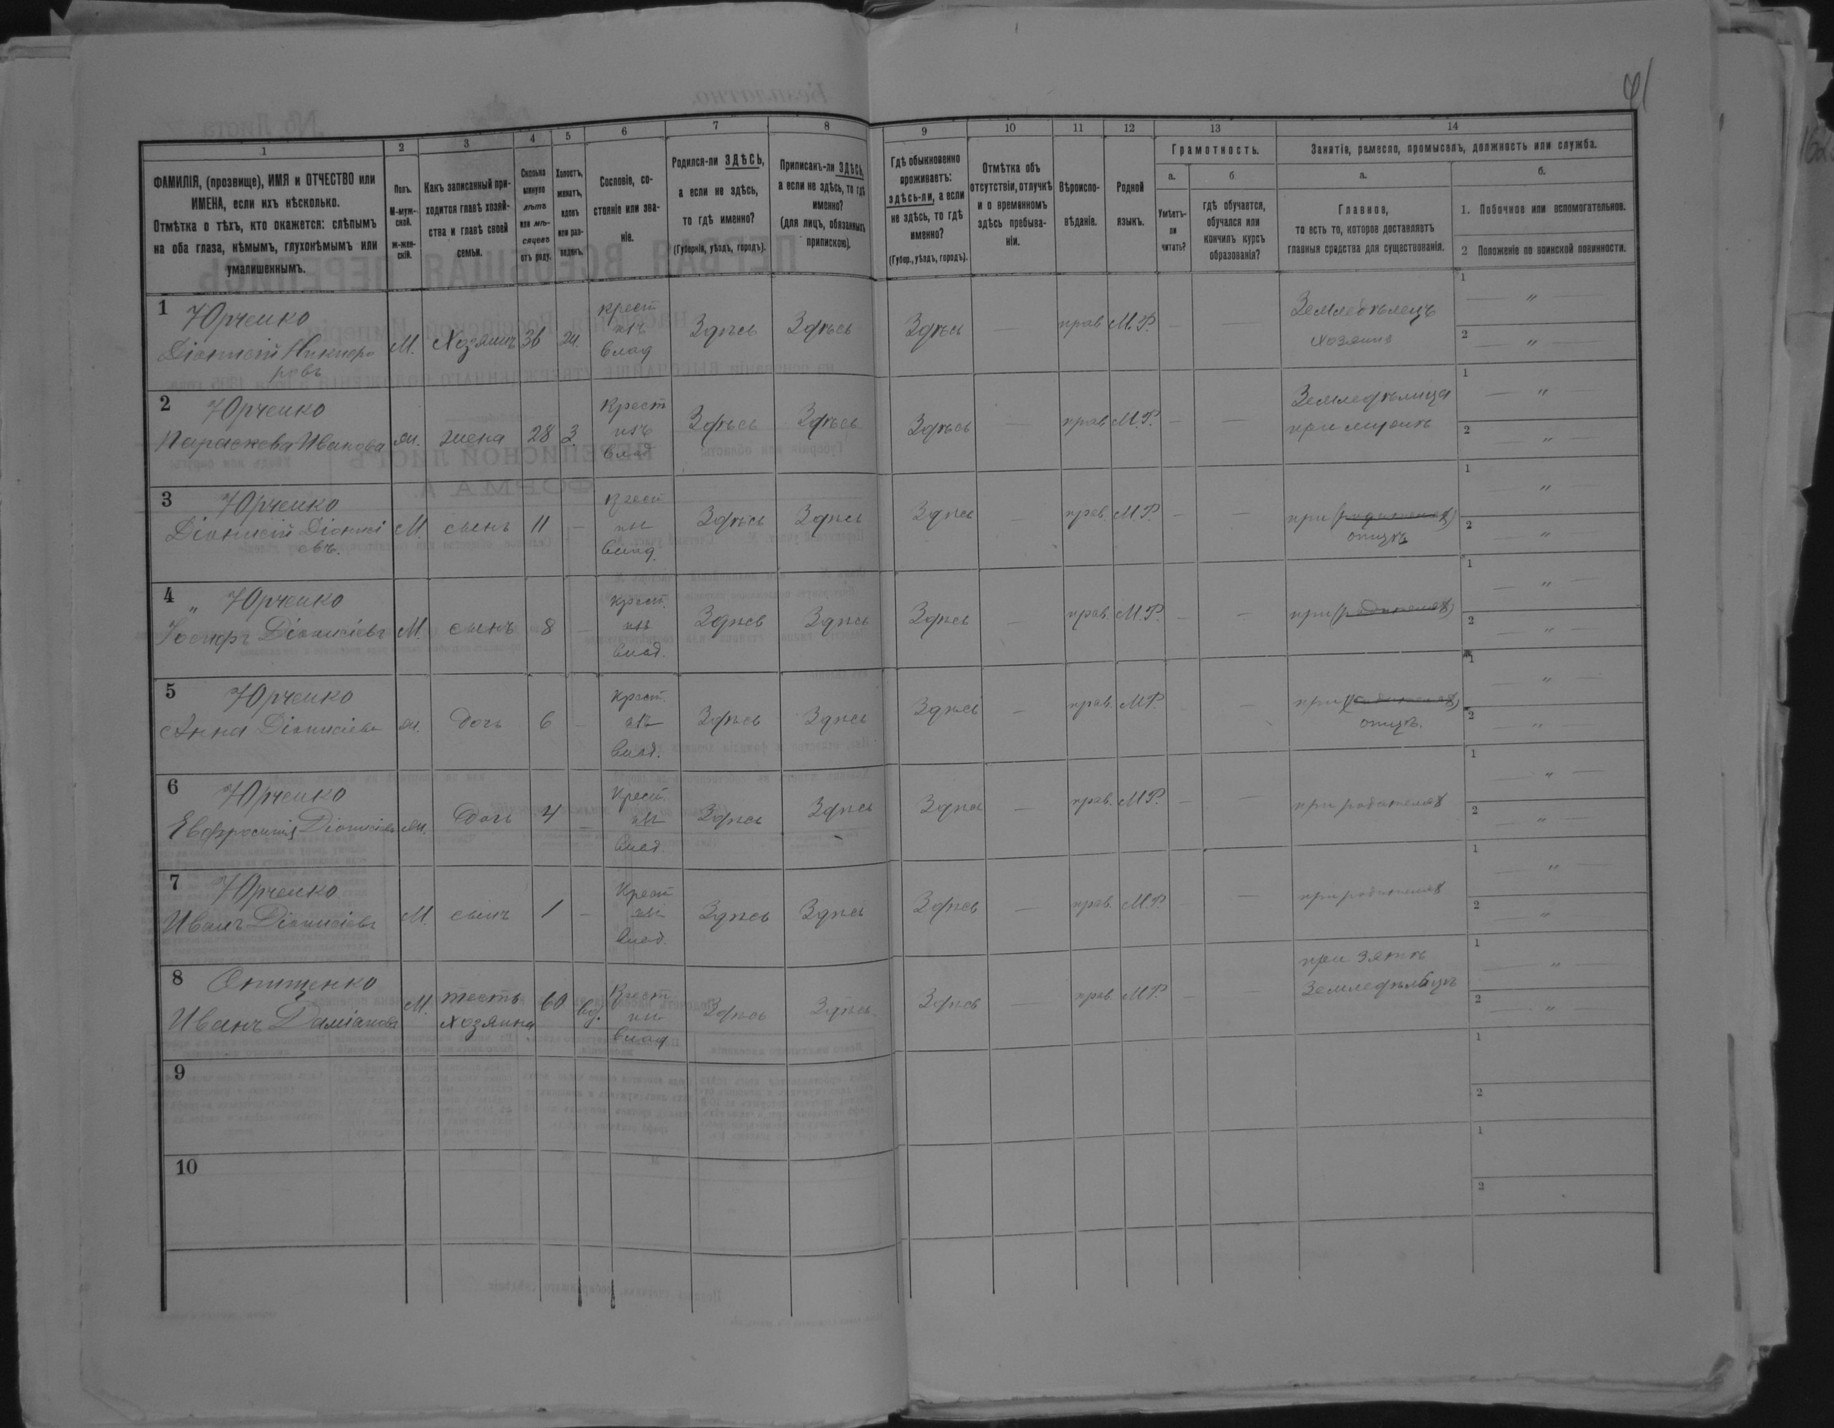 41
1
2
3
4
5
6
7
8
9
10
11
12
13
14
ФАМИЛІЯ, (прозвище), ИМЯ и ОТЧЕСТВО или
ИМЕНА, если ихъ нѣсколько.
Отмѣтка о тѣхъ, кто окажется: слѣпымъ
на оба глаза, нѣмымъ, глухонѣмымъ или
умалишеннымъ.
Полъ.
М-муж-
ской.
ж-жен-
скій.
Какъ записанный при-
ходится главѣ хозяй-
ства и главѣ своей
семьи.
Сколько
минуло
лѣтъ
или мѣ-
сяцевъ
отъ роду.
Холостъ,
женатъ,
вдовъ
или раз-
веденъ.
Сословіе, со-
стояніе или зва-
ніе.
Родился-ли ЗДѢСЬ,
а если не здѣсь,
то гдѣ именно?
(Губернія, уѣздъ, городъ).
Приписанъ-ли ЗДѢСЬ,
а если не здѣсь, то гдѣ
именно?
(для лицъ, обязанныхъ
припискою).
Гдѣ обыкновенно
проживаетъ:
здѣсь-ли, а если
не здѣсь, то гдѣ
именно?
(Губер., уѣздъ, городъ).
Отмѣтка объ
отсутствіи, отлучкѣ
и о временномъ
здѣсь пребыва-
ніи.
Вѣроиспо-
вѣданіе.
Родной
языкъ.
Грамотность.
а.
Умѣетъ-
ли
читать?
б.
гдѣ обучается,
обучался или
кончилъ курсъ
образованія?
Занятія, ремесло, промыселъ, должность или служба.
а.
Главное,
то есть то, которое доставляетъ
главныя средства для существованія.
б.
1. Побочное или вспомогательное.
2 Положеніе по воинской повинности.
1 Юрченко
Діонисій Никифо
ровъ
М. Хозяинъ 36 ж. Крест
изъ
влад Здѣсь Здѣсь Здѣсь — прав М.Р. — — Земледѣлецъ
хозяинъ 1 — „ —
2 — „ —
2 Юрченко
Параскева Иванова ж. жена 28 З. Крест
изъ
влад Здѣсь Здѣсь Здѣсь — прав М.Р. — — Земледѣлица
при 1 — „ —
2 — „ —
3 Юрченко
Діонисій Діониси
евъ.
М сынъ 11 — Крест
изъ
влад. Здѣсь Здѣсь Здѣсь — прав. М.Р. — — при (родителях)
отцѣ 1 — „ —
2 — „ —
4 „ Юрченко
Іосифъ Діонисіевъ М. сынъ 8 — Крест.
изъ
влад. Здѣсь Здѣсь Здѣсь — прав. М.Р. — — при (родителях) 1 — „ —
2 — „ —
5 Юрченко
Анна Діонисіева ж. дочь 6 — Крест.
изъ
влад. Здѣсь Здѣсь Здѣсь — прав. М.Р. — — при (родителях)
отцѣ. 1 — „ —
2 — „ —
6 Юрченко
Евфросинія Діонисіева ж. дочь 4 — Крест.
изъ
влад. Здѣсь Здѣсь Здѣсь — прав. М.Р. — — при родителях 1 — „ —
2 — „ —
7 Юрченко
Иванъ Діонисіевъ М. сынъ 1 — Крест
изъ
влад. Здѣсь Здѣсь Здѣсь — прав. М.Р. — — при родителях 1 — „ —
2 — „ —
8 Онищенко
Иванъ Даміановъ М. тесть
хозяина 60 вд. Крест
изъ
влад Здѣсь Здѣсь. Здѣсь — прав М.Р. — — при зятѣ
Земледѣлецъ 1 — „ —
2 — „ —
9 1
2
10 1
2